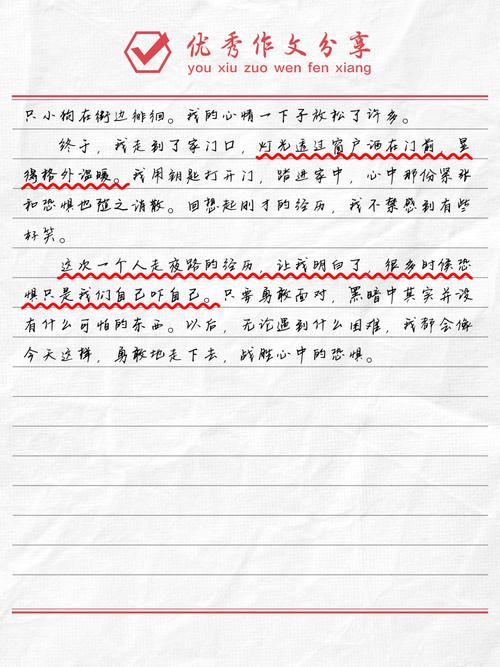 优秀作文分享
you xiu zuo wen fen xiang
只小狗在街边徘徊。我的心情一下子放松了许多。
终于，我走到了家门口，灯光透过窗户洒在门前，显
得格外温暖。我用钥匙打开门，踏进家中，心中那份紧张
和恐惧也随之消散。回想起刚才的经历，我不禁感到有些
好笑。
这次一个人走夜路的经历，让我明白了，很多时候恐
惧只是我们自己吓自己。只要勇敢面对，黑暗中其实并没
有什么可怕的东西。以后，无论遇到什么困难，我都会像
今天这样，勇敢地走下去，战胜心中的恐惧。